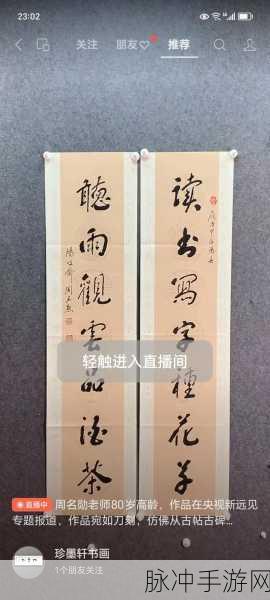 23:02
关注
朋友♡
推荐
读书写字种花草
聽雨觀雲品酒茶
轻触进入直播间
直播中 周名勋老师80岁高龄，作品在央视新远见
专题报道，作品宛如刀刻，仿佛从古帖古碑...
珍墨轩书画
1个朋友关注
脉冲手游网